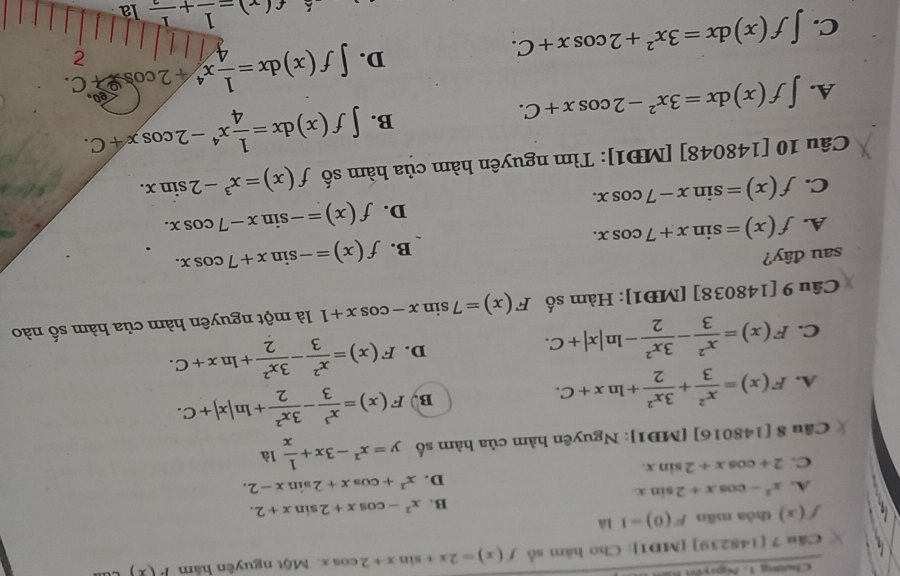 Câu 7 [148239] [MĐ1]: Cho hàm số f(x) = 2x + sin x + 2cos x. Một nguyên hàm F(x) của
f(x) thỏa mãn F(0) = 1 là
A. x² − cos x + 2sin x. B. x² − cos x + 2sin x + 2.
C. 2 + cos x + 2sin x. D. x² + cos x + 2sin x − 2.
Câu 8 [148016] [MĐ1]: Nguyên hàm của hàm số y = x² − 3x + 1/x là
A. F(x) = x²/3 + 3x²/2 + ln x + C. B. F(x) = x³/3 − 3x²/2 + ln|x| + C.
C. F(x) = x²/3 − 3x²/2 − ln|x| + C. D. F(x) = x²/3 − 3x²/2 + ln x + C.
Câu 9 [148038] [MĐ1]: Hàm số F(x) = 7sin x − cos x + 1 là một nguyên hàm của hàm số nào
sau đây?
A. f(x) = sin x + 7cos x. B. f(x) = −sin x + 7cos x.
C. f(x) = sin x − 7cos x. D. f(x) = −sin x − 7cos x.
Câu 10 [148048] [MĐ1]: Tìm nguyên hàm của hàm số f(x) = x³ − 2sin x.
A. ∫f(x)dx = 3x² − 2cos x + C. B. ∫f(x)dx = 1/4 x⁴ − 2cos x + C.
C. ∫f(x)dx = 3x² + 2cos x + C. D. ∫f(x)dx = 1/4 x⁴ + 2cos x + C.
f(x) = 1/ + 1/ là
2
60°